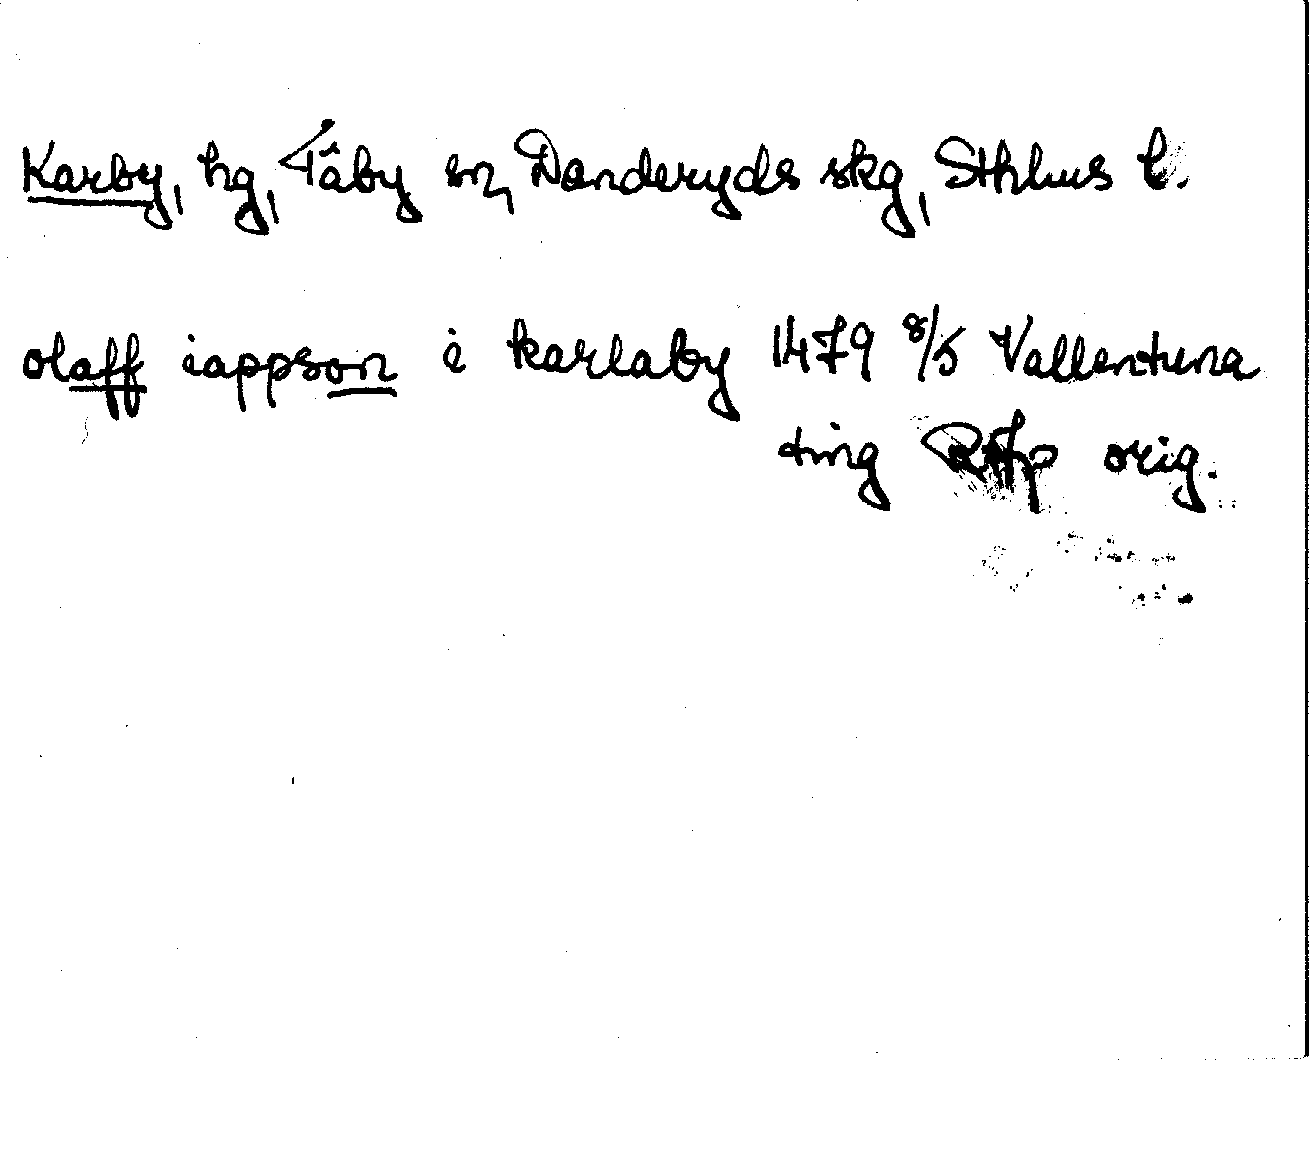 Karby, hg, Täby sn, Danderyds skg, Sthlms l.
olaff iappson i karlaby 1479 8/5 Vallentuna
ting RAp orig.